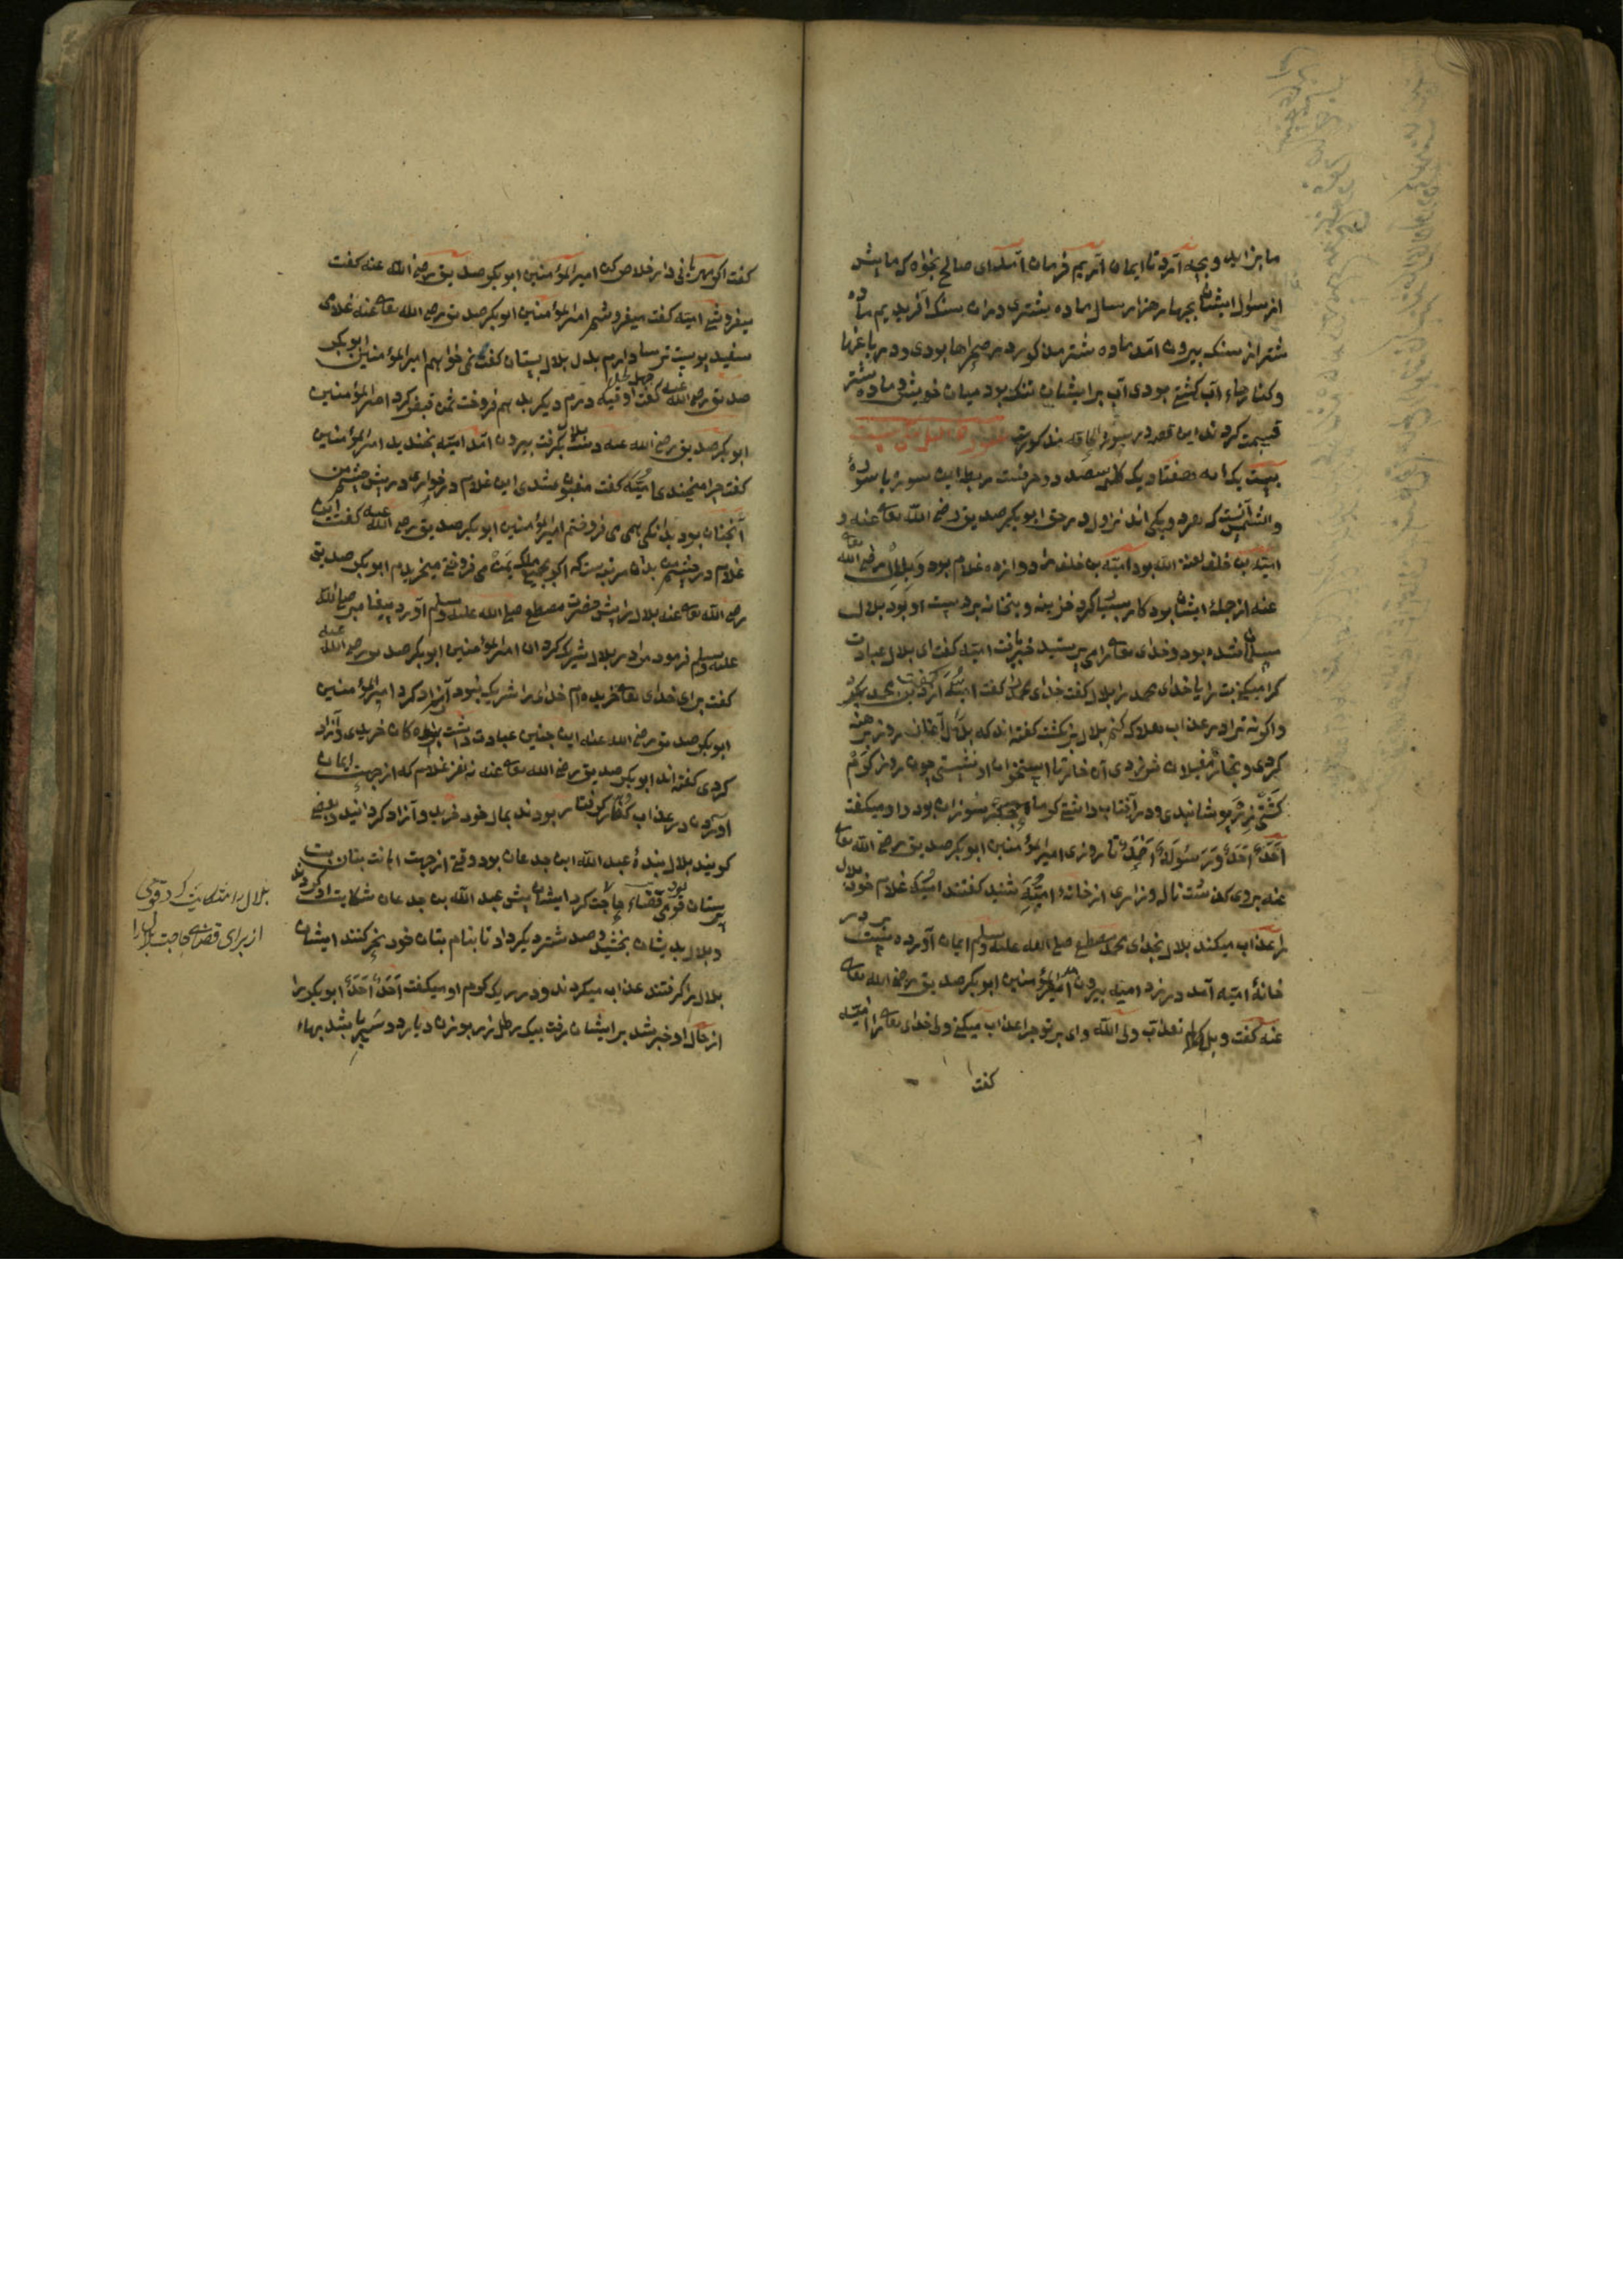 ما بزاید و بچه آرد تا ایمان آریم فرمان آمد ای صالح بخواه که ما پیش
از سؤال ایشان بچهار هزار سال ماده شتری دران سنک آفریدیم ماده
شتر از سنک بیرون آمد ماده شتر مذکور در صحراها بودی و در باغها
و کنارهاء آب کشتی بودی آب بر ایشان تنک بود میان خویش و ماده شتر
قسمت کردند این قصه در سورة الحاقه مذکورست سورة واللیل مکیست
بیست یک آیه هفتاد یک کلمه سیصد و ده حرفست ربط این سوره با سورۀ
والشمس آنست که هر دو یکی اند نزول در حق ابوبکر صدیق رضی الله تعالی عنه و
امیّة بن خلف لعنه الله بود امیّة بن خلف را دوازده غلام بود و بلال رضی الله تعالی
عنه از جملۀ ایشان بود کار بسیار کرد خزینه و بتخانه بردست او بود بلال
مسلمان شده بود و خدای تعالی را می پرستید خبر یافت امیّه کفت ای بلال عبادت
کرا میکنی بت را یا خدای محمد را بلال کفت خدای محمد را کفت امیّه از دین محمد بکرد
و اکر نه ترا در عذاب هلاک کنم بلال بر نکشت کفته اند که بلال را غازان روز برهنه
کردی و بخار مغیلان خونزدی آن خارها استخوان او نشستی چون روز کرم
کشتی زره پوشانیدی و در آفتاب داشتی کرماء جکر سوزان بود و او میکفت
اَحَدٌ اَحَدٌ وَ تا روزی امیرالمؤمنین ابوبکر صدیق رضی الله تعالی
عنه بروی کذشت ناله و زاری از خانۀ امیّه شنید کفتند امیّه غلام خود بلال
را عذاب میکند بلال بخدای محمد مصطفی صلی الله علیه وسلم ایمان آورده است بر در
خانۀ امیّه آمد در زد امیّه بیرون آمد امیرالمؤمنین ابوبکر صدیق رضی الله تعالی
عنه کفت ویلک لم تعذب ولی الله وای بر تو چرا عذاب میکنی ولی خدای تعالی را امیّه
کفت
کفت اکر مهربانی داری خلاص کن امیرالمؤمنین ابوبکر صدیق رضی الله عنه کفت
میفروشی امیّه کفت میفروشم امیرالمؤمنین ابوبکر صدیق رضی الله تعالی عنه غلامی
سفید پوست ترسا دارم بدل بلال بستان کفت نمی خواهم امیرالمؤمنین ابوبکر
صدیق رضی الله عنه کفت اوقیه درم دیکر بدهم فروخت ثمن قبض کرد امیرالمؤمنین
ابوبکر صدیق رضی الله عنه دست بلال بکرفت بیرون آمد امیّه بخندید امیرالمؤمنین
کفت چرا میخندی امیّه کفت مغبون شدی این غلام در خواری در پیش چشم من
آنچنان بود بدانکی همی می فروختم امیرالمؤمنین ابوبکر صدیق رضی الله عنه کفت این
غلام در چشم من بدان مرتبه ست که اکر بجمیع ملک یمن می فروختی میخریدم ابوبکر صدیق
رضی الله تعالی عنه بلال را پیش حضرت مصطفی صلی الله علیه وسلم آورد پیغامبر صلی الله
علیه وسلم فرمود مرا در بلال شریک کردان امیرالمؤمنین ابوبکر صدیق رضی الله عنه
کفت برای خدای تعالی خریده ام خدای را شریک نبود آزاد کرد امیرالمؤمنین
ابوبکر صدیق رضی الله عنه این چنین عبادت داشت بنده کان خریدی و آزاد
کردی کفته اند ابوبکر صدیق رضی الله تعالی عنه نه نفر غلام که از جهت ایمان
آوردن در عذاب کفار کرفتار بودند بمال خود خرید و آزاد کردانید و بعضی
کویند بلال بندۀ عبد الله ابن جدعان بود وقتی از جهت اهانت بتان بت
پرستان قومی قضاء حاجت کرد ایشان پیش عبد الله بن جدعان شکایت او کردند
و بلال بدیشان بخشید و صد شتر دیکر داد تا بنام بتان خود نحر کنند ایشان
بلال را کرفتند عذاب میکردند و در ریک کرم او میکفت اَحَدٌ اَحَدٌ ابوبکر را
از حال او خبر شد بر ایشان رفت بیک رطل زر بوزن دیار دو سیر باشد بهاء
بلال را شکایت کردند قومی
از برای قضاء حاجت بلال را